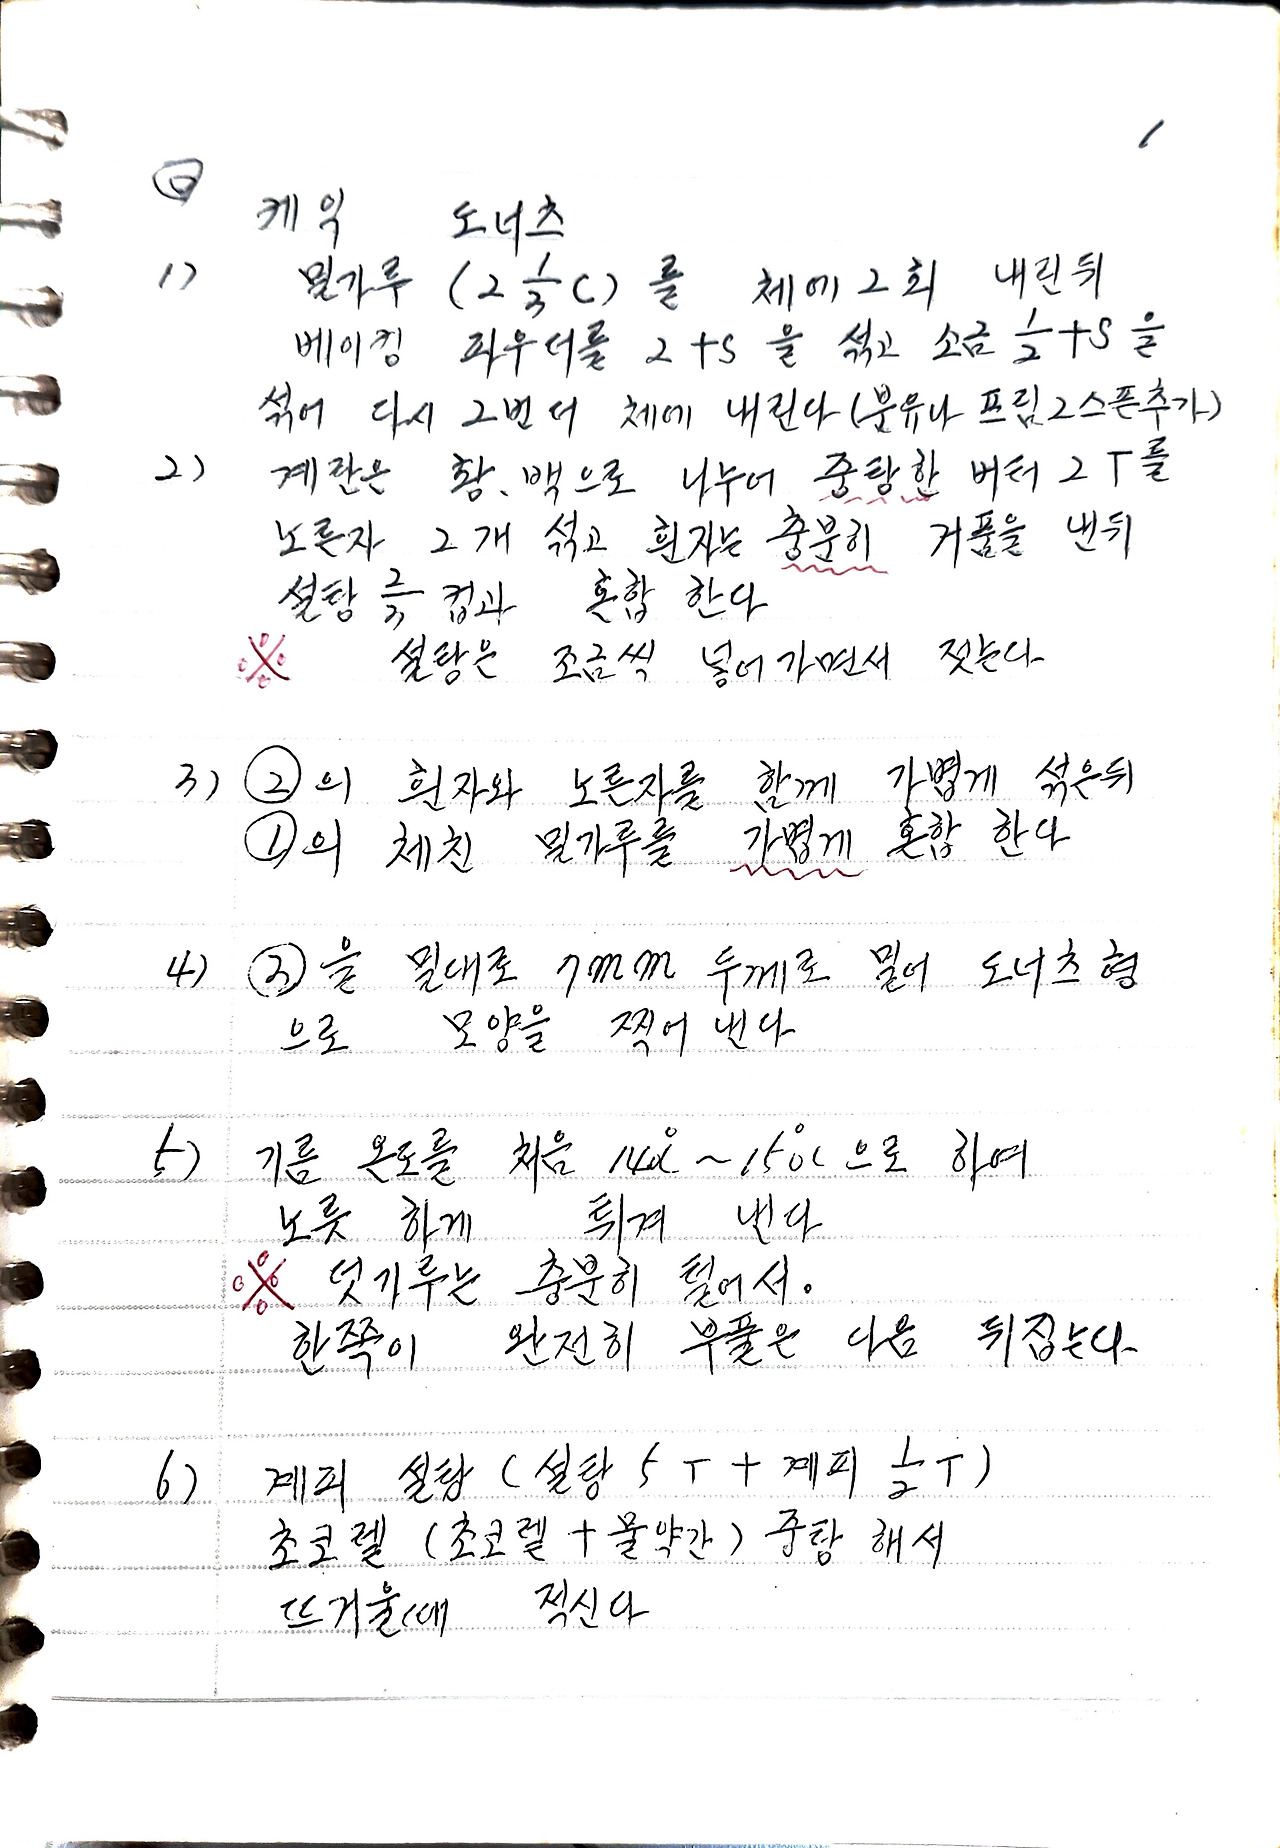 1
케익 도너츠
1) 밀가루 (2 1/3 C)를 체에 2회 내린뒤
베이킹 파우더를 2 tS 을 섞고 소금 1/2 tS 을
섞어 다시 2번더 체에 내린다 (분유나 프림 2스픈추가)
2) 계란은 황.백으로 나누어 중탕한 버터 2 T를
노른자 2개 섞고 흰자는 충분히 거품을 낸뒤
설탕 2/3 컵과 혼합 한다
※ 설탕은 조금씩 넣어가면서 젓는다
3) ②의 흰자와 노른자를 함께 가볍게 섞은뒤
①의 체친 밀가루를 가볍게 혼합 한다
4) ③을 밀대로 7mm 두께로 밀어 도너츠형
으로 모양을 찍어 낸다
5) 기름 온도를 처음 140℃ ~ 150℃ 으로 하여
노릇 하게 튀겨 낸다
※ 덧가루는 충분히 털어서.
한쪽이 완전히 부풀은 다음 뒤집는다
6) 계피 설탕 (설탕 5 T + 계피 1/2 T)
초코렡 (초코렡 + 물약간) 중탕 해서
뜨거울때 적신다